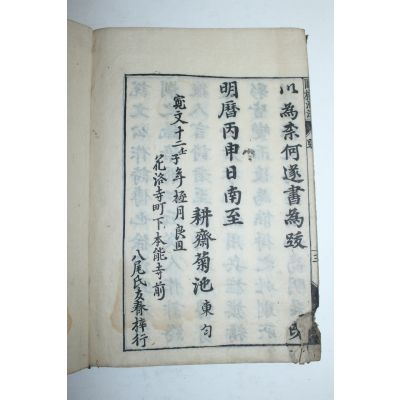 以為柰何遂書為跋
明曆丙申日南至
耕齋菊池東勻
寬文十二壬子年極月良且
花洛寺町下本能寺前
八尾氏友春梓行